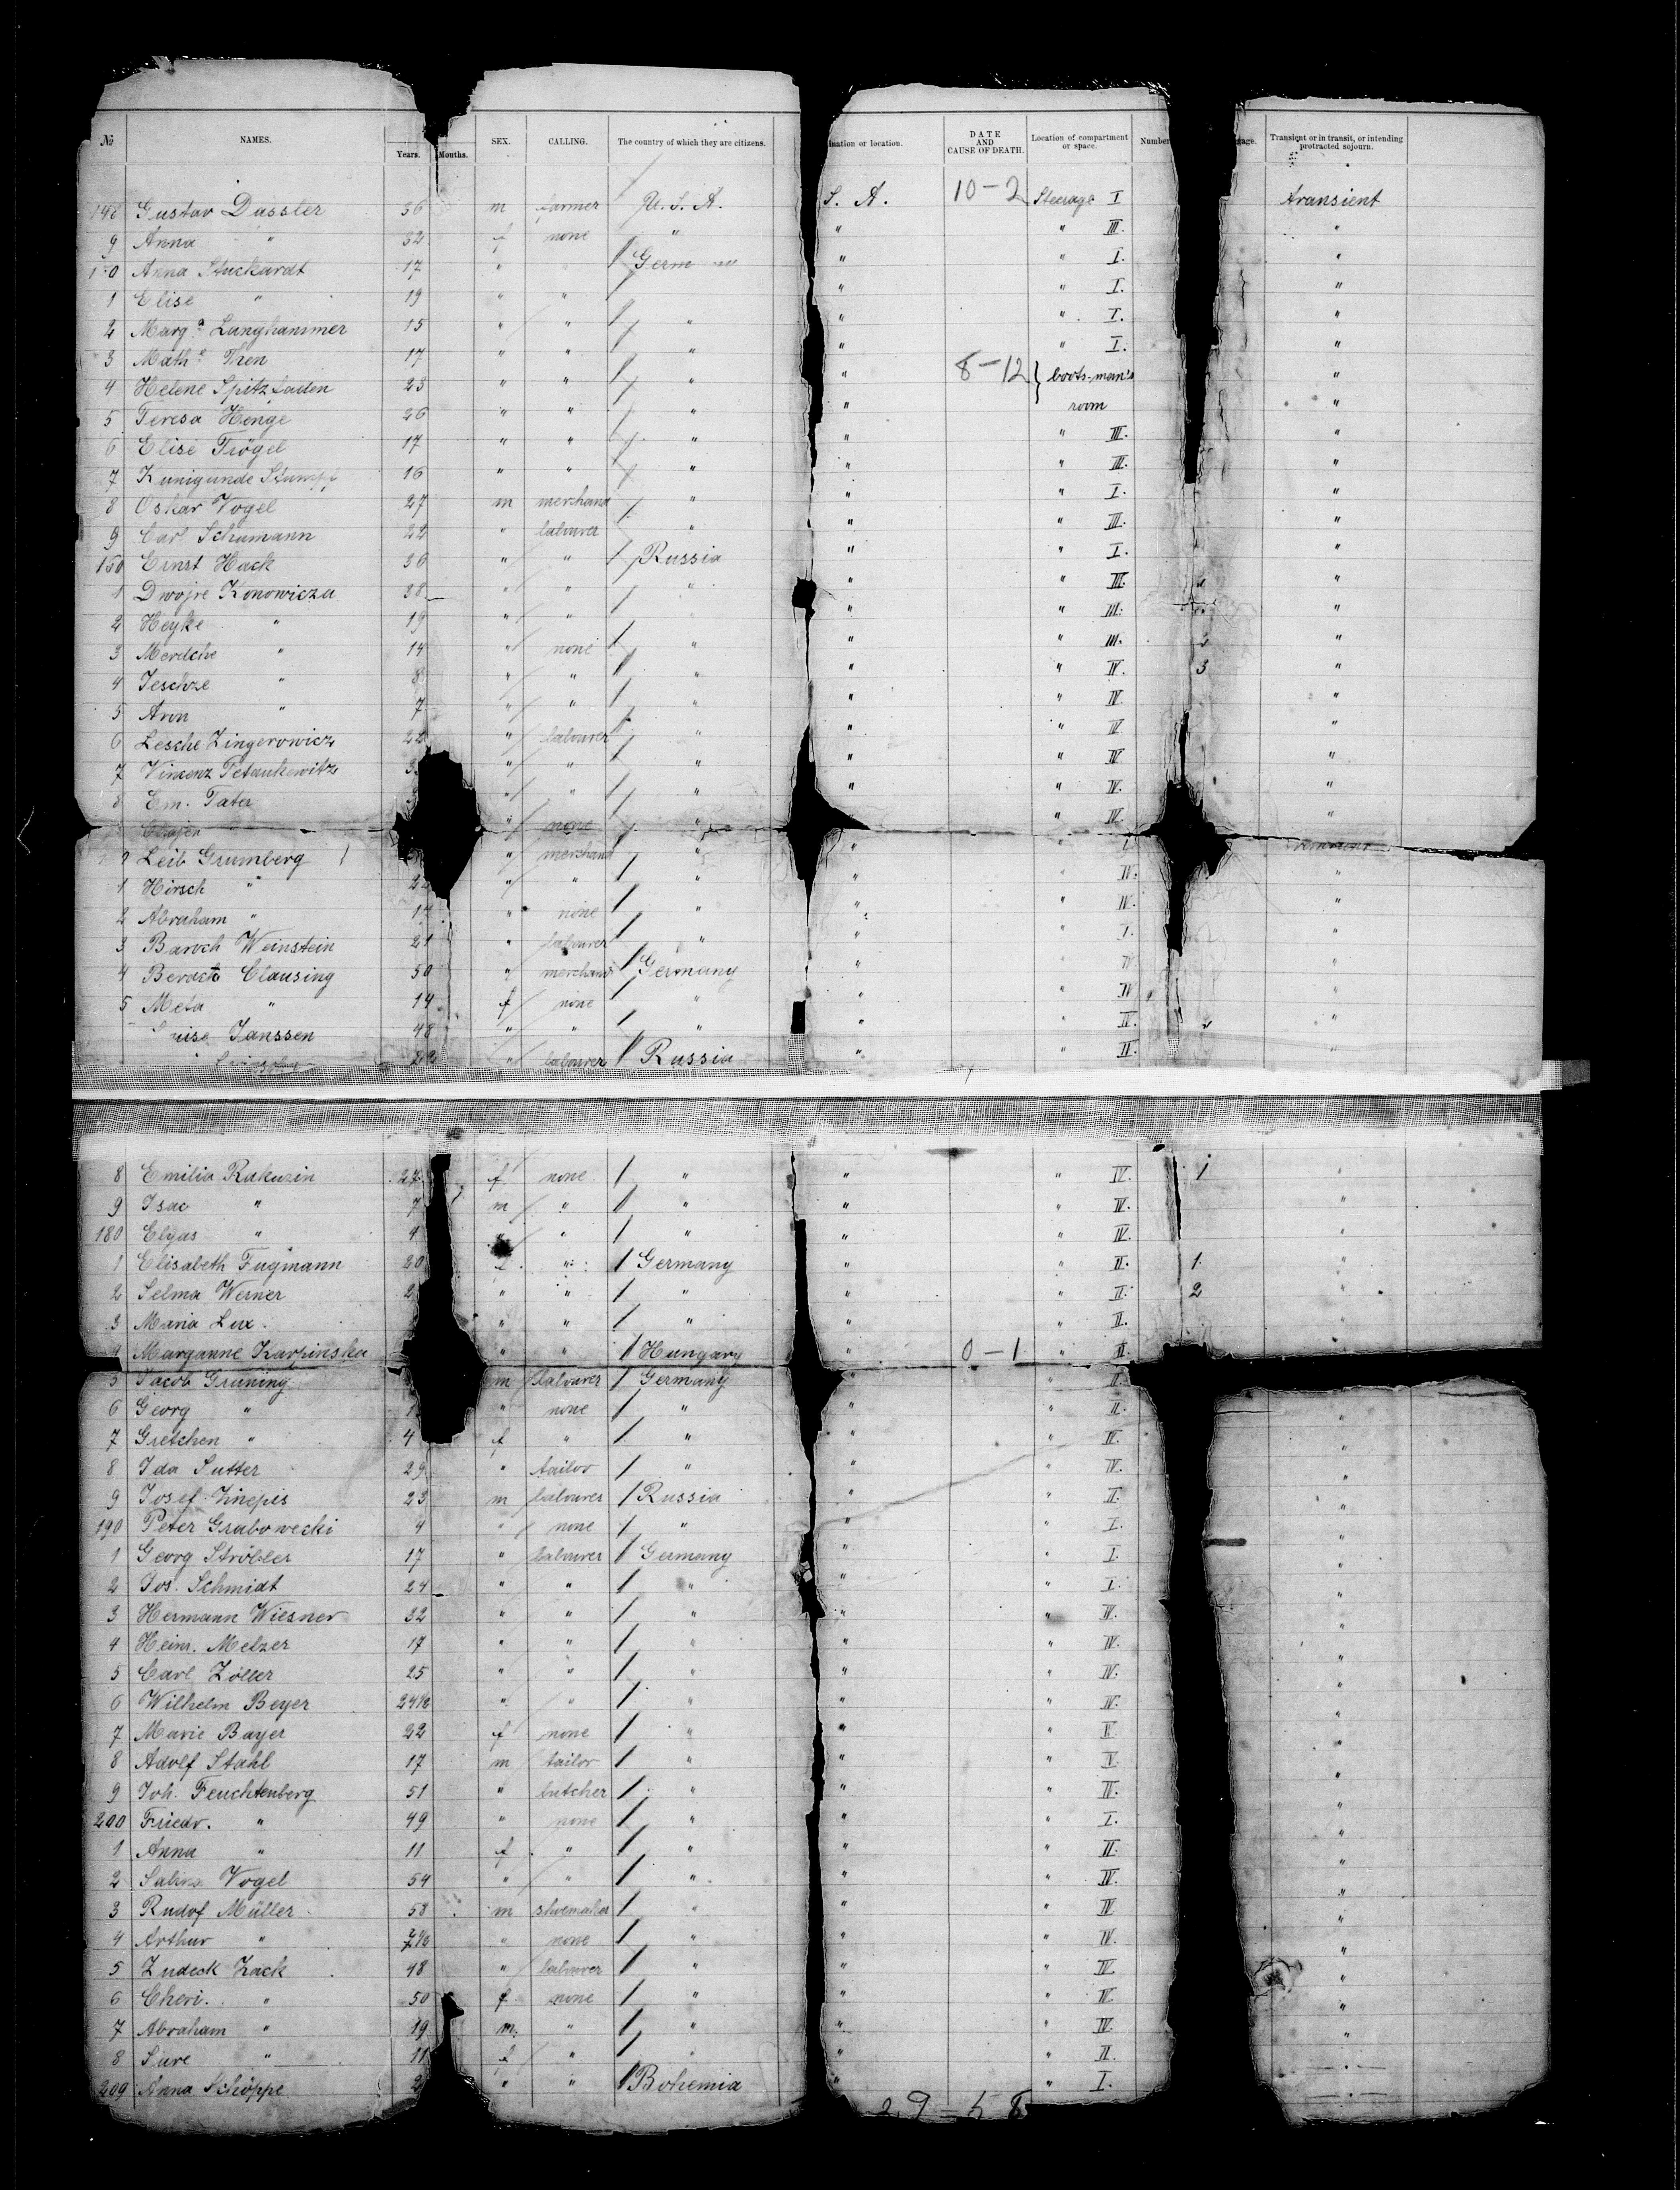 № NAMES. Years. Months. SEX. CALLING. The country of which they are citizens. ination or location. DATE AND CAUSE OF DEATH. Location of compartment or space. Number age. Transient or in transit, or intending protracted sojourn.
148 Gustav Dassler 36 m farmer U. S. A. S. A. 10-2 Steerage I transient
9 Anna " 32 f none " " " III. "
150 Anna Stuckardt 17 " Germ " " I. "
1 Elise " 19 " " " " I. "
2 Marg.a Langhammer 15 " " " " " I. "
3 Math.e Then 17 " " " " " I. "
4 Helene Spitzfaden 23 " " " " 8-12 } boots-man's "
5 Teresa Henge 26 " " " " room "
6 Elise Trögel 17 " " " " " III. "
7 Kunigunde Stumpf 16 " " " " " III. "
8 Oskar Vogel 27 m merchand " " " I. "
9 Carl Schumann 22 " labourer " " " III. "
160 Ernst Hack 36 " " Russia " " I. "
1 Dwojre Konowicza 38 " " " " " III. "
2 Heyke " 19 " " " " " III. "
3 Merdche " 14 " none " " " III. 2 "
4 Jeschze " 8 " " " " " IV. 3 "
5 Aron " 7 " " " " " IV. "
6 Lesche Zingerowicz 22 " labourer " " " IV. "
7 Vincenz Petaukewitz 3 " " " " " IV. "
8 Em. Tater " " " " " IV. "
" none " " IV. "
Leib Grumberg " merchand " " " "
1 Hirsch " 22 " " " " " IV. "
2 Abraham " 17 " none " " " IV. "
3 Baroch Weinstein 21 " labourer " " " I. "
4 Clausing 50 " merchand Germany " " IV "
5 Meta " 14 f none " " " IV "
uise Janssen 48 " " " " " IV. "
" labourer Russia " " II. "
8 Emilia Rakuzin 27 f none " " " IV. 1 "
9 Isac " 7 m " " " " IV. "
180 Elyas " 4 " " " " " IV. "
1 Elisabeth Fugmann 20 f " Germany " " II. 1 "
2 Selma Werner 2 " " " " " II. 2 "
3 Maria Lux. " " " " " II. "
4 Marganne Karpinska " " Hungary " 0-1 " II
5 Jacob Gruning m labourer Germany " " II.
6 Georg " 1 " none " " " II. "
7 Gretchen " 4 f " " " " IV. "
8 Ida Sutter 29 " tailor " " " IV. "
9 Josef Zinepis 23 m labourer Russia " " II. "
190 Peter Grabowecki 4 " none " " " I. "
1 Georg Ströbler 17 " labourer Germany " " I. "
2 Jos. Schmidt 24 " " " " " I. "
3 Hermann Wiesner 32 " " " " " IV. "
4 Heinr. Melzer 17 " " " " " IV. "
5 Carl Zöller 25 " " " " " IV. "
6 Wilhelm Beyer 24½ " " " " " IV. "
7 Marie Bayer 22 f none " " " II. "
8 Adolf Stahl 17 m tailor " " " I. "
9 Joh. Feuchtenberg 51 " butcher " " " II. "
200 Friedr. " 49 " none " " " I. "
1 Anna " 11 f " " " " II. "
2 Vogel 54 " " " " " IV. "
3 Rudof Müller 58 m shoemaker " " " IV "
4 Arthur " " none " " " IV. "
5 Zudeck Zack 48 " labourer " " " IV "
6 Cheri. " 50 f none " " " IV. "
7 Abraham " 19 m. " " " " IV. "
8 Sure " 11 f " " " " II. "
209 Anna Schöppe 2 " " Bohemia " " I.
29-58